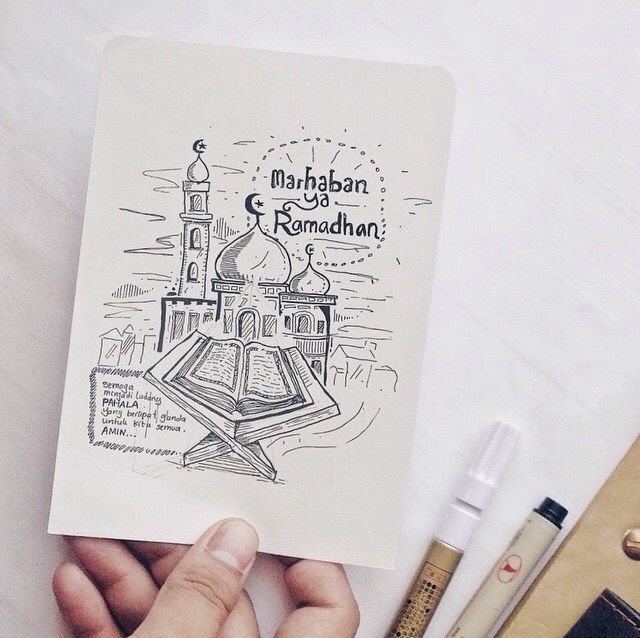 Marhaban
ya
Ramadhan
Semoga
menjadi ladang
PAHALA
yang berlipat ganda
untuk kita semua.
AMIN...